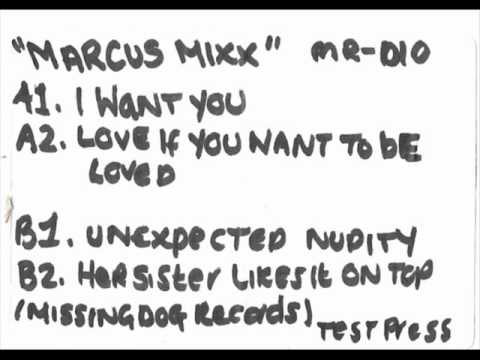 "MARCUS MIXX" MR-010
A1. I WANT YOU
A2. LOVE If YOU WANT TO bE
LOVED
B1. UNEXPECTED NUDITY
B2. HER SISTER LIKES IT ON TOP
(MISSING DOG RECORDS) TEST PRESS